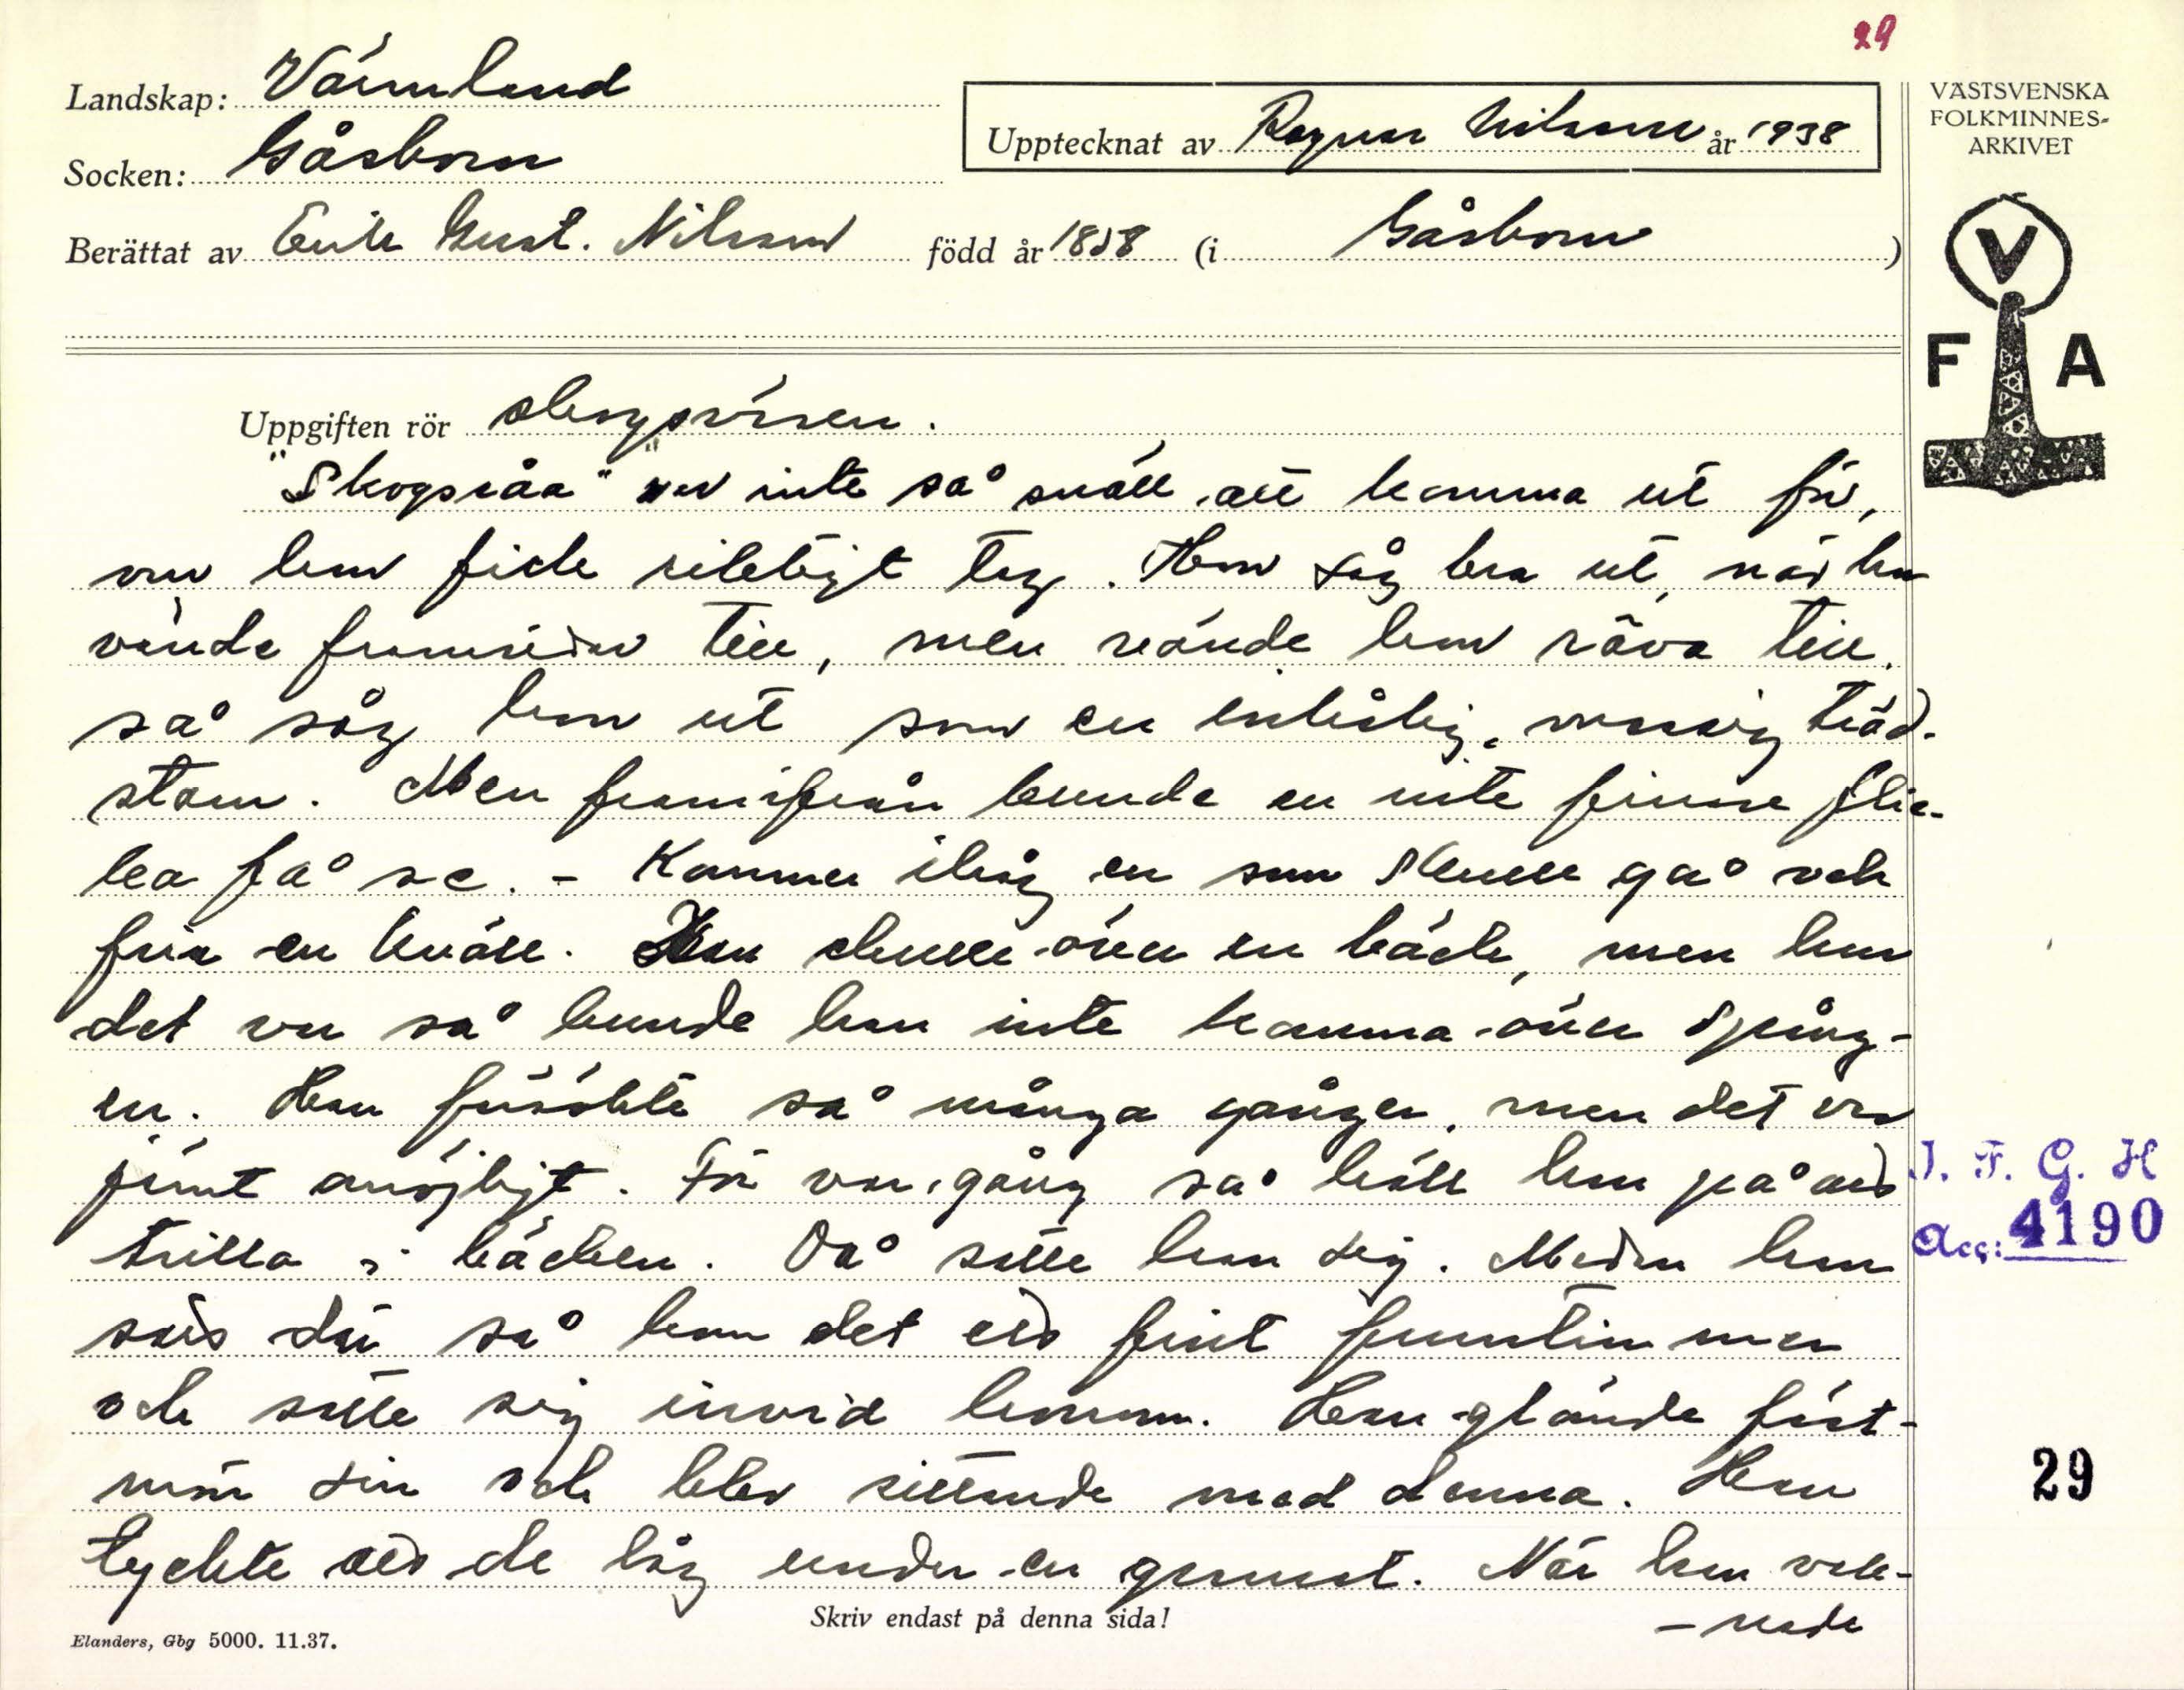 29
Landskap: Värmland
Socken: Gåsborn
Upptecknat av Ragnar Nilsson år 1938
Berättat av Erik Gust. Nilsson född år 1858 (i Gåsborn)
VÄSTSVENSKA
FOLKMINNES-
ARKIVET
V
F A
Uppgiften rör skogsväsen.
"Skogsråa" var inte så snäll att komma ut för,
om hon fick riktigt tag. Hon såg bra ut, när hon
vände framsidan till, men vände hon röva till,
så såg hon ut som en ihålig, murken träd-
stam. Men framifrån kunde en inte finare flic-
ka få se. - Kommer ihåg en som skulle gå och
fria en kväll. Han skulle över en bäck, men hur
det var så kunde han inte komma över spång-
en. Han försökte så många gånger, men det var
jämt omöjligt. För var gång så höll han på att
trilla i bäcken. Då satte han sig. Medan han
satt där så kom det ett fint fruntimmer
och satte sig invid honom. Han glömde fäst-
mön sin och blev sittande med denna. Han
tyckte att de låg under en granrot. När han vak-
-nade
J. F. G. H
Acc: 4190
29
Skriv endast på denna sida!
Elanders, Gbg 5000. 11.37.